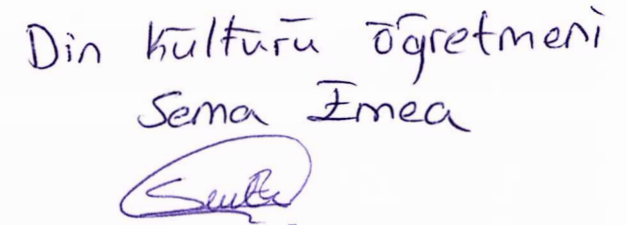 Din Kültürü öğretmeni
Sema